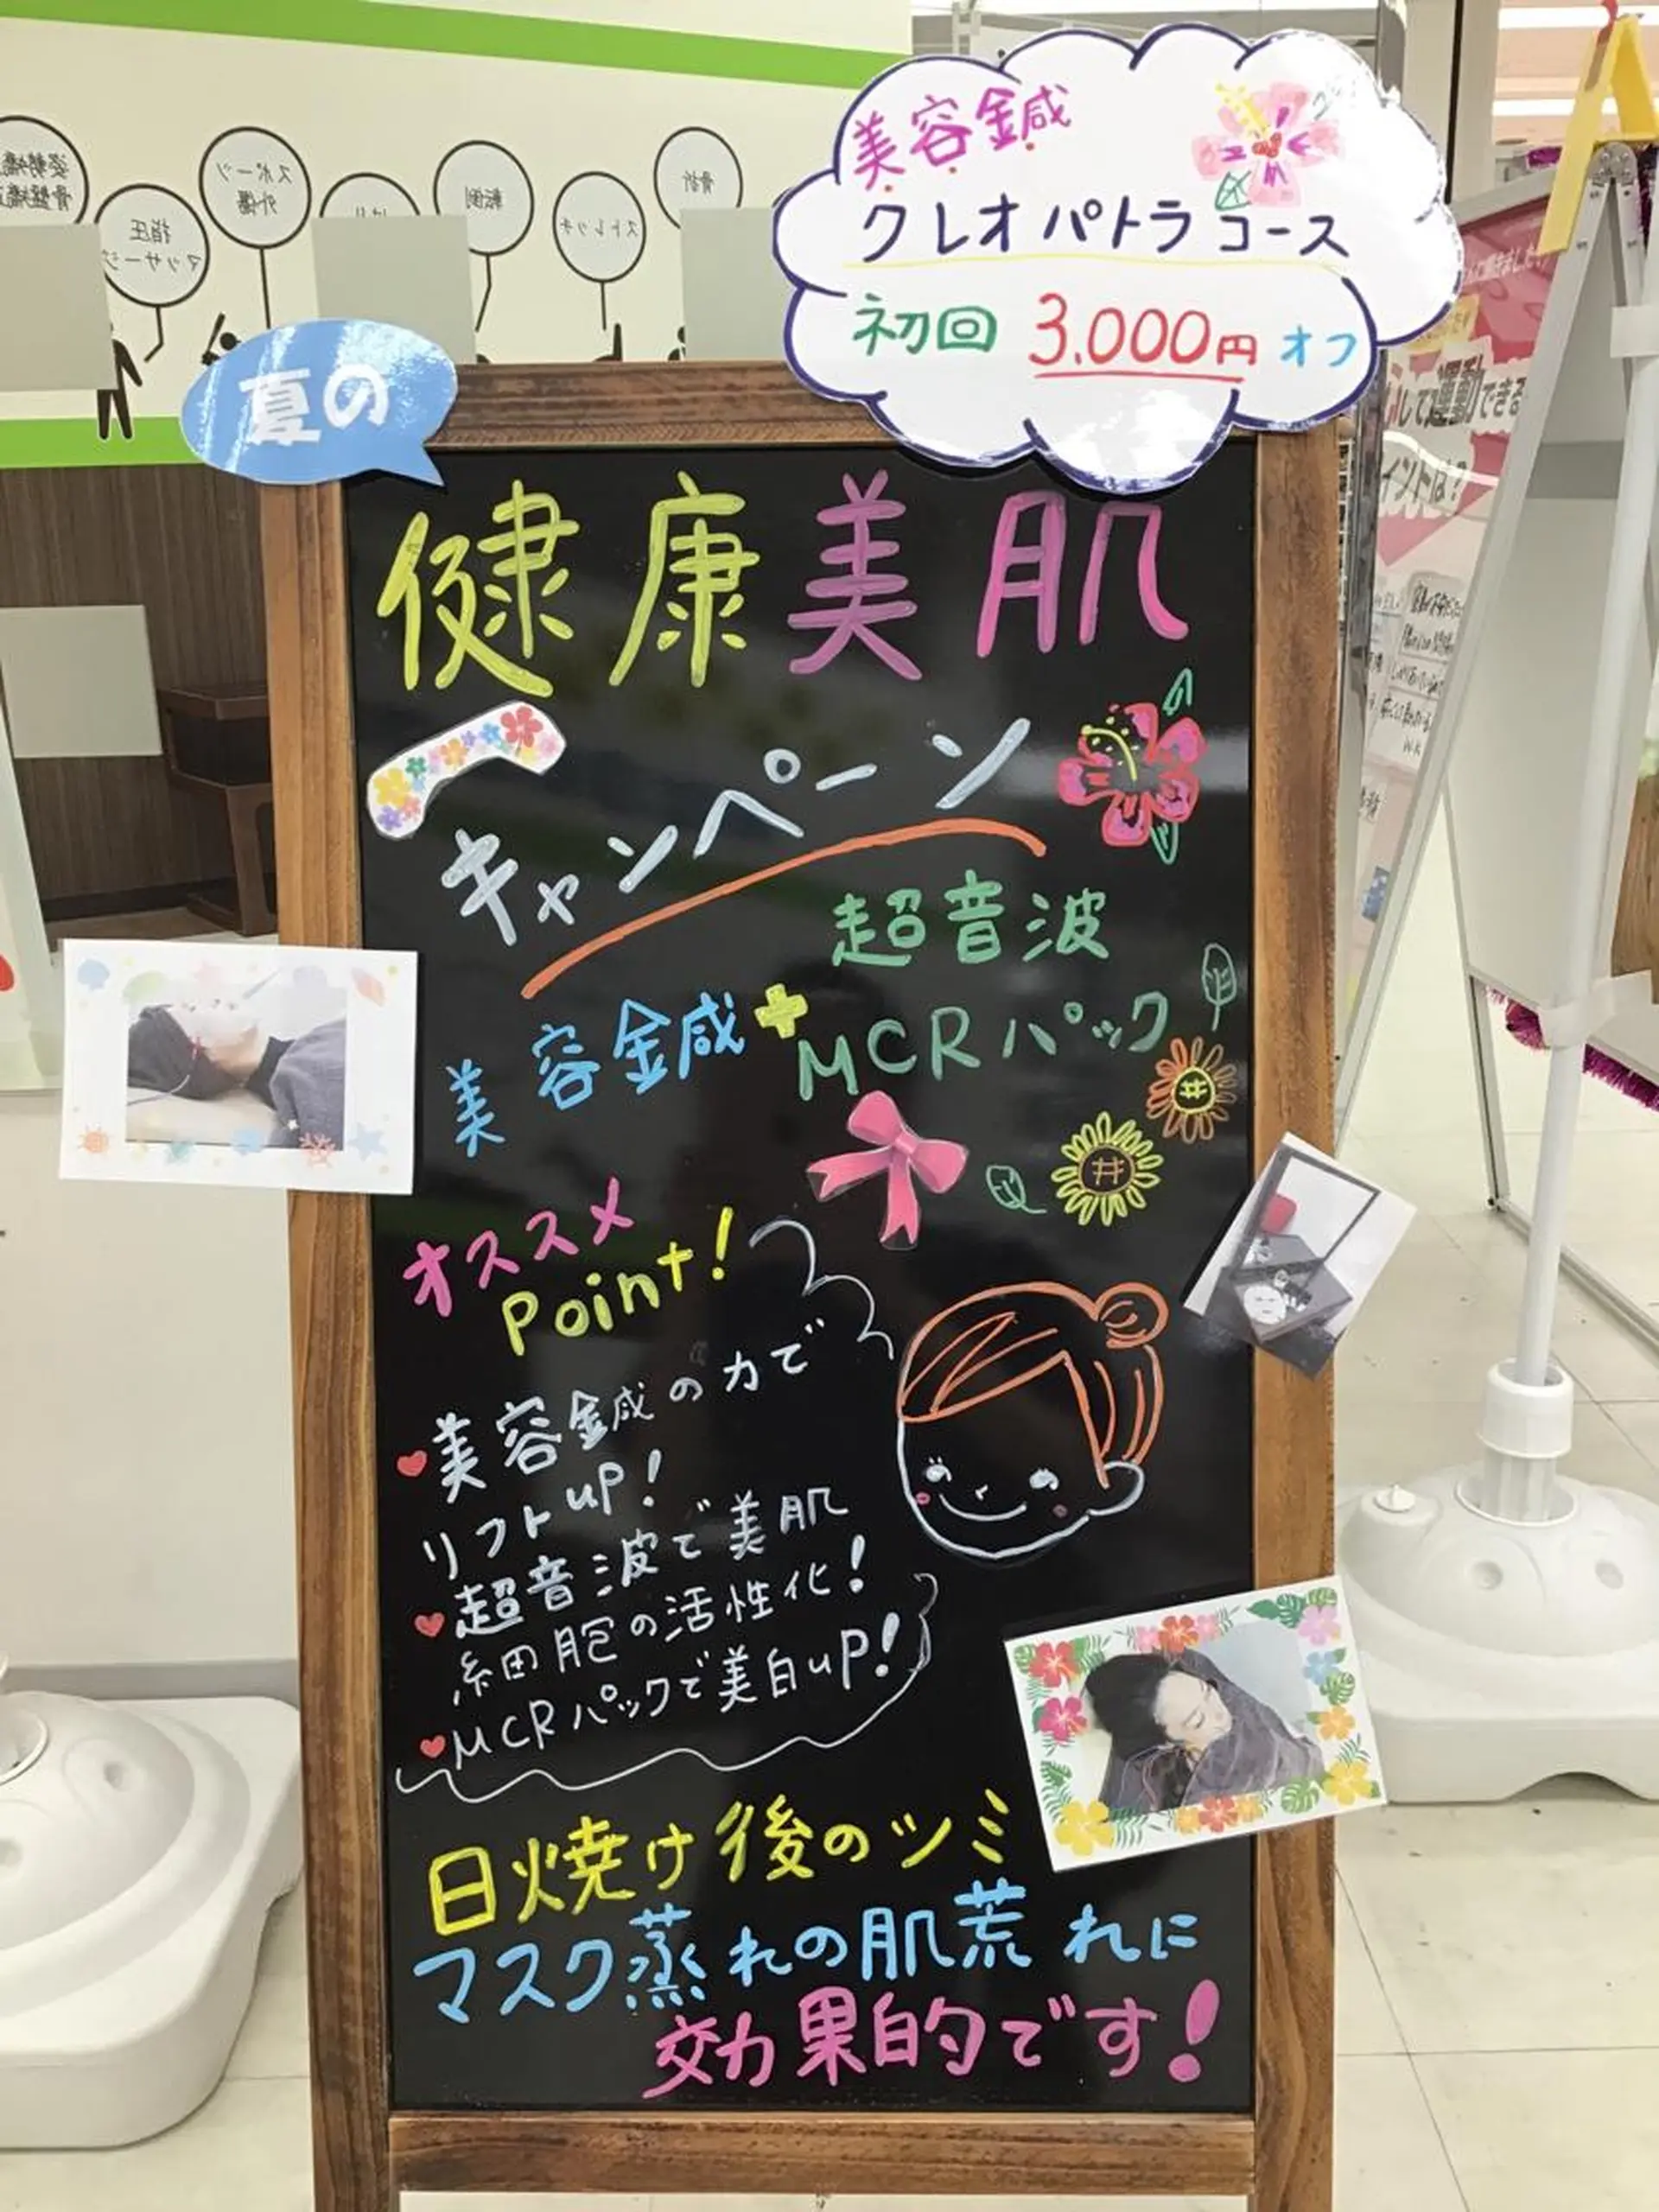 美容鍼
クレオパトラコース
初回 3.000円オフ
夏の
健康美肌
キャンペーン
超音波
美容鍼+MCRパック
オススメ
Point!
美容鍼の力で
リフトup!
超音波で美肌
細胞の活性化!
MCRパックで美白up!
日焼け後のツミ
マスク蒸れの肌荒れに
効果的です!
スポーツ
外傷
指圧
マッサージ
転倒
ストレッチ
骨折
して運動できる
イントは?